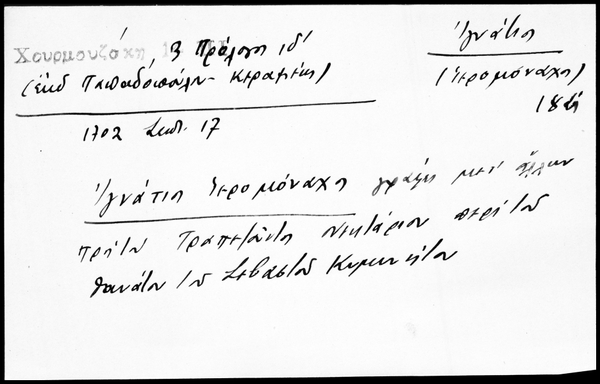 Χουρμουζάκη 13 Πρόλογος ιδ'
(ἐκδ Παπαδοπούλου - Κεραμέως)
Ἰγνάτιος
(ἱερομόναχος)
1702 Σεπτ. 17
Ἰγνάτιος ἱερομόναχος γράφει μετ' ἄλλων
πρὸς τὸν Τραπεζοῦντος Νεκτάριον περὶ τοῦ
θανάτου τοῦ Σεβαστοῦ Κυμινήτου